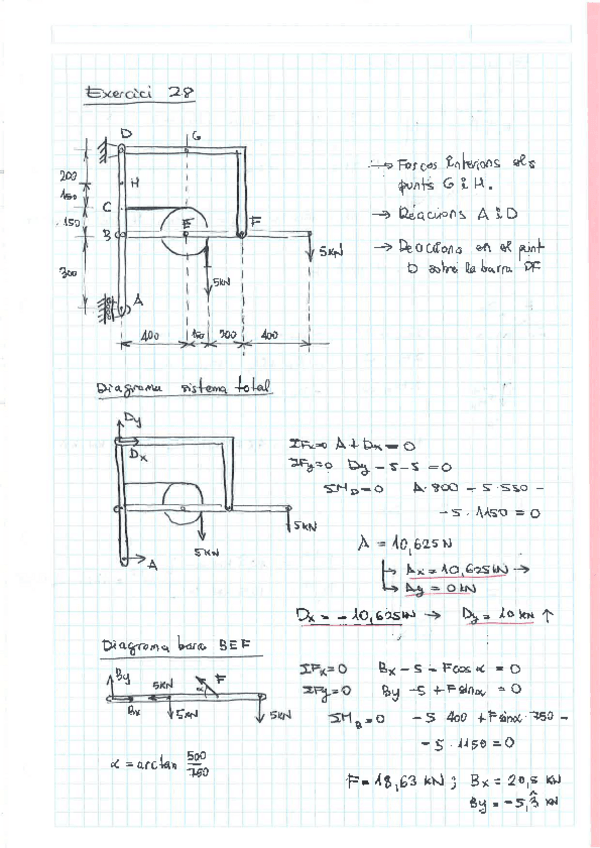 Exercici 28
D
G
200
H
150
C
150
B
E
F
5kN
300
5kN
A
400
150
200
400
→ Forces Interiors els
punts G i H.
→ Reacions A i D
→ Reaccions en el punt
D sobre la barra DF
Diagrama sistema total
Dy
Dx
5kN
5kN
A
ΣFx=0 A + Dx = 0
ΣFy=0 Dy - 5 - 5 = 0
ΣM_D=0 A·800 - 5·550 -
- 5·1150 = 0
A = 10,625N
Ax = 10,625kN →
Ay = 0 kN
Dx = - 10,625kN → Dy = 10 kN ↑
Diagrama barra BEF
By
5kN
α
F
Bx
5kN
5kN
α = arctan 500/750
ΣFx=0 Bx - 5 - F cos α = 0
ΣFy=0 By - 5 + F sinα = 0
ΣM_B=0 - 5 400 + F sinα·750 -
- 5·1150 = 0
F = 18,63 kN ; Bx = 20,5 kN
By = -5,3̂ kN